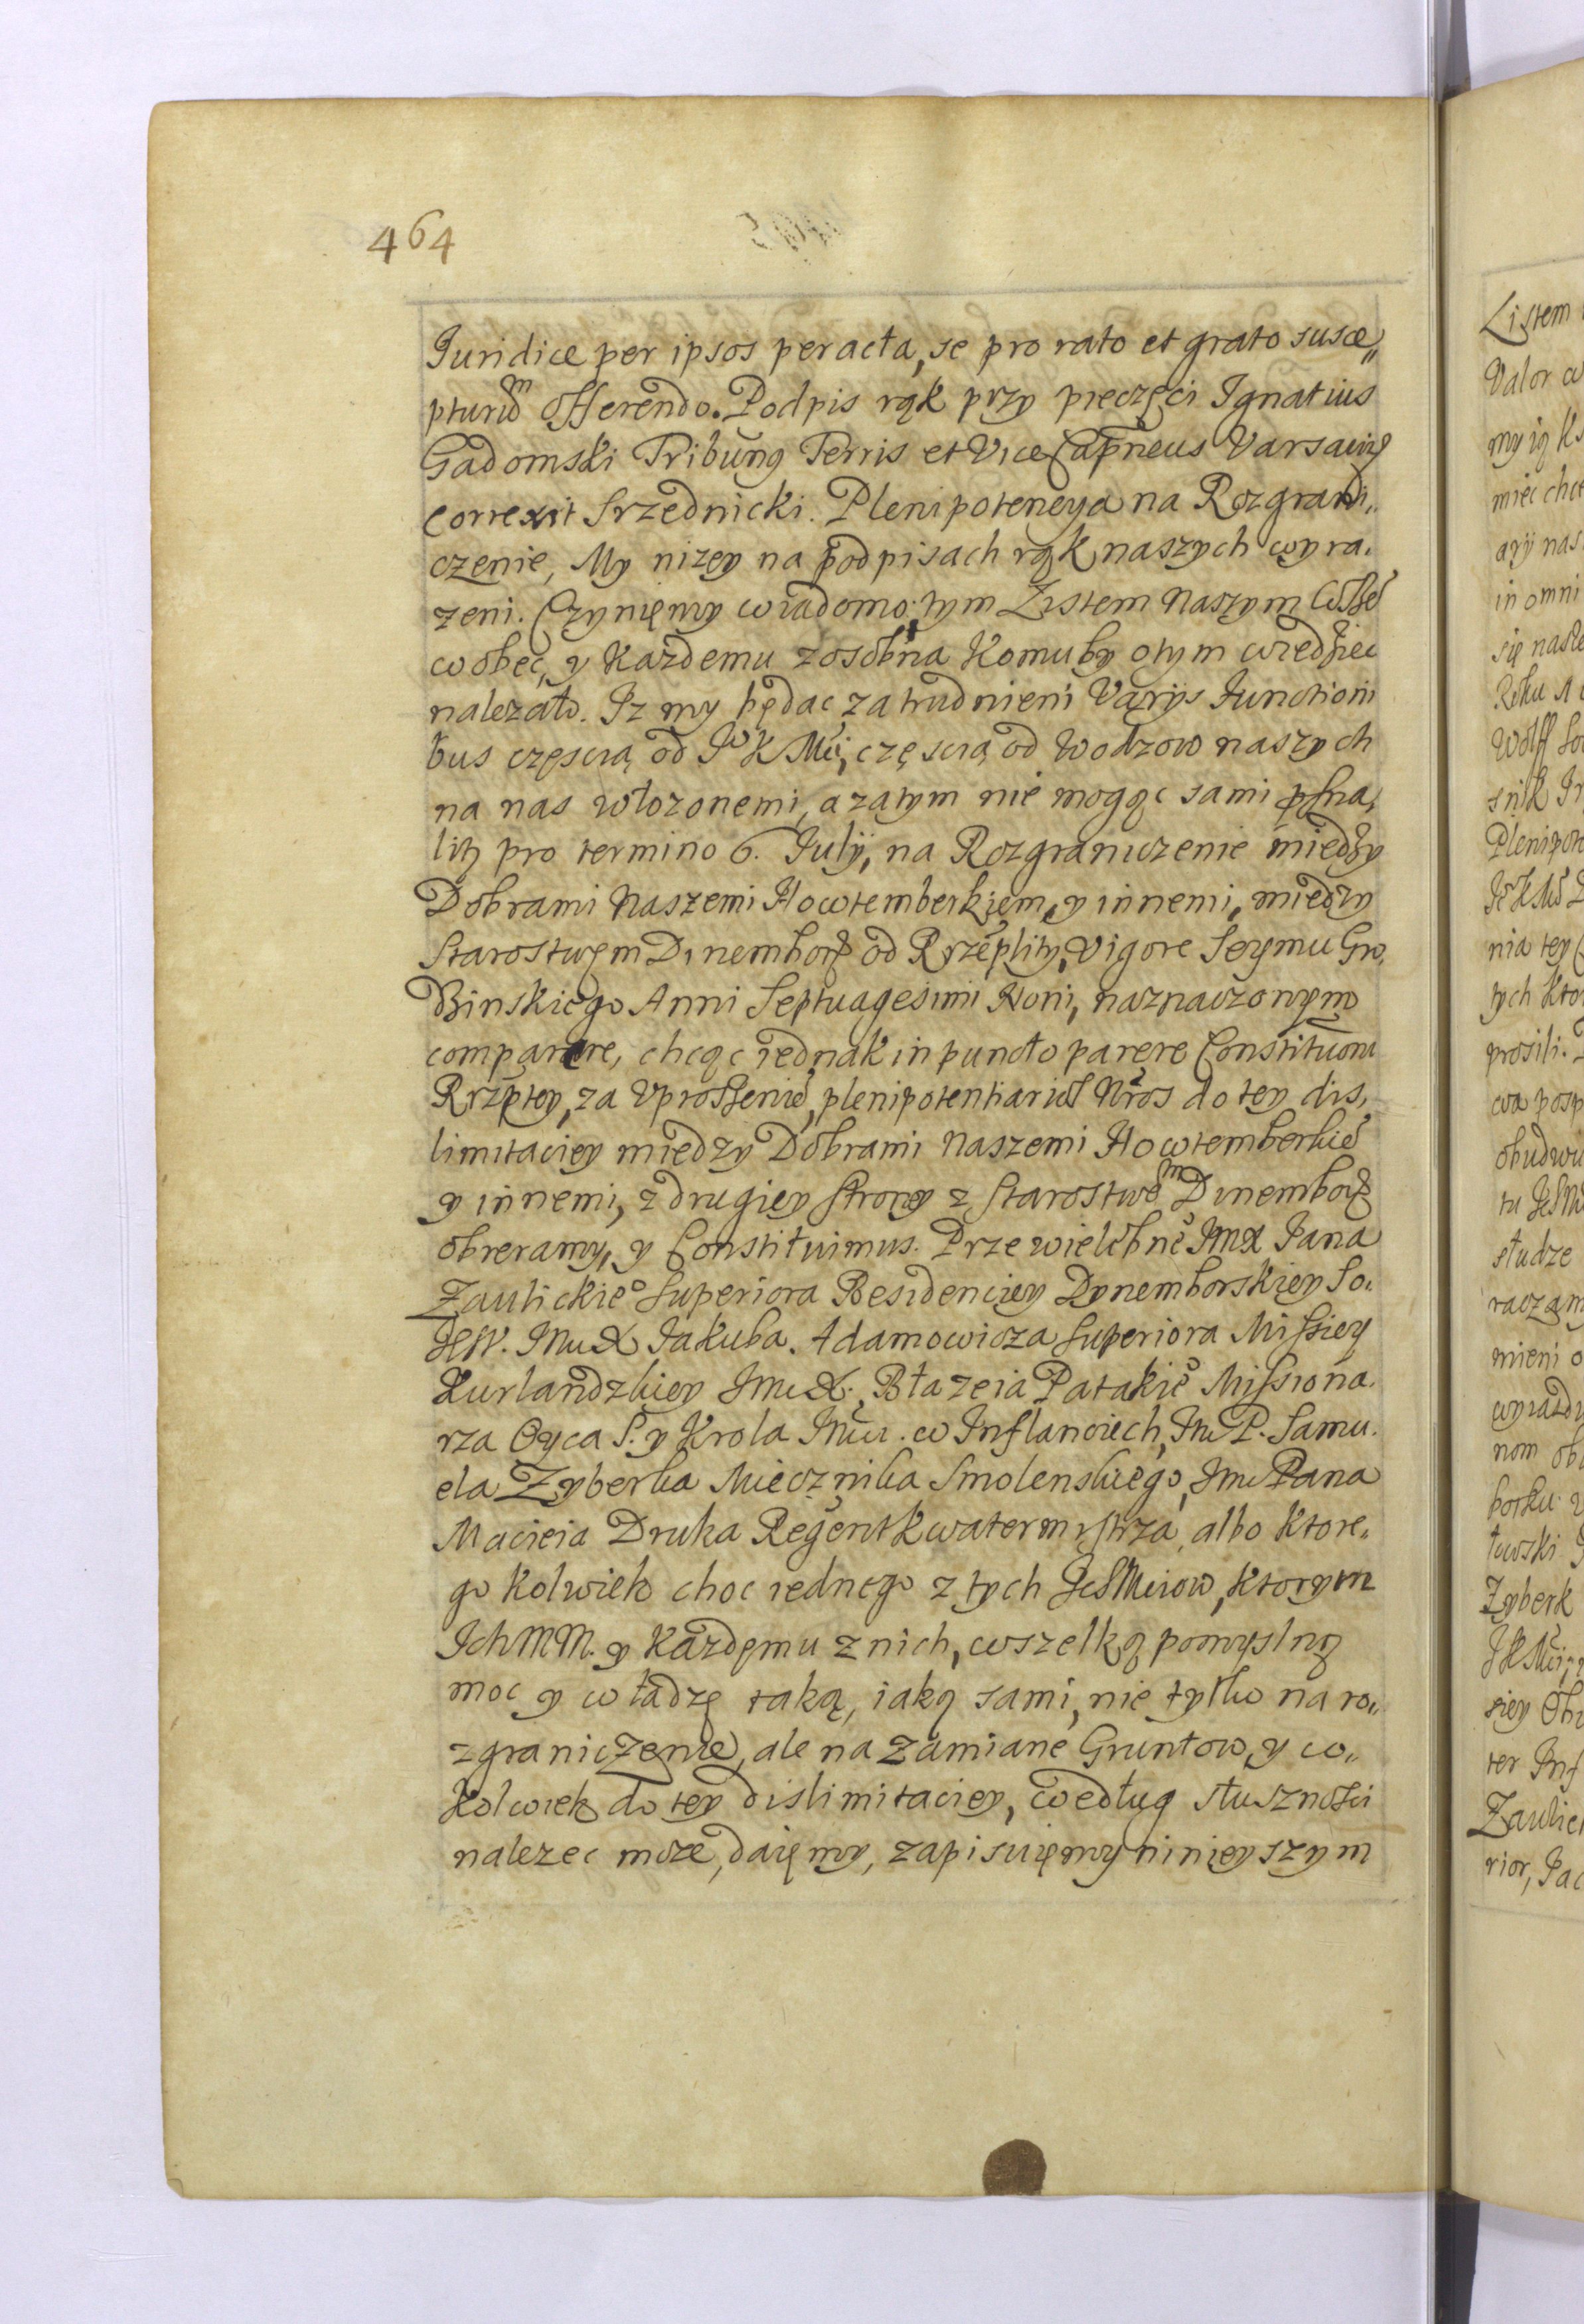 464
Juridice per ipsos peracta, se pro rato et grato susce„
pturum offerendo. Podpis rąk przy pieczęci Ignatius
Gadomski Tribung Terris et Vice Capneus Varsavię
Correxit Srzednicki. Plenipotencya na Rozgrani„
czenie, My nizey na podpisach rąk naszych wyra.
zeni. Czynięmy wiadomo, tym Listem Naszym
wobec, y Kazdemu zosobna Komu by otym wiedziec
nalezało. Iz my będąc zatrudnieni Varijs Functioni
bus częscią od JoKMci, częscią od Wodzow naszych
na nas włozonemi, a zatym nie mogąc sami psna,
litz pro termino 6. Julij, na Rozgraniczenie między
Dobrami Naszemi Howtemberkiem, y innemi, między
Starostwem Dinemborz od Rrzeplity, vigore Seymu Gro,
Dzinskiego Anni Septuagesimi Noni, naznaczonym
comparere, chcąc iednak in puncto parere Constituoni
Rrzptey, za Uprossenie, plenipotentiarios Nros do tey dis,
limitaciey między Dobrami Naszemi Howtemberkie
y innemi, z drugiey strony z Starostwem Dinemborz
obieramy, y Constituimus. Przewielebne JmX Jana
Zaulickie Superiora Residenciey Dynemborskiey So.
JESV. JMcX Jakuba Adamowicza Superiora Missiey
Kurlandzkiey JmcX. Błazeia Patakie Missiona.
rza Oyca S. y Krola Jmci. w Inflanciech, Jm P. Samu.
ela Zyberka Miecznika Smolenskiego, Jmc Pana
Macieia Druka Regent Kwatermistrza, albo Ktore„
go Kolwiek choc iednego z tych IchMciow, Ktorym
Ich MM. y Kazdemu z nich, wszelką pomyslną
moc y władzę taką, iaką sami, nie tylko na ro„
zgraniczenie, ale na zamiane Gruntow, y co„
Kolwiek do tey dislimitaciey, według słusznosci
nalezec moze, daięmy, zapisuięmy ninieyszym